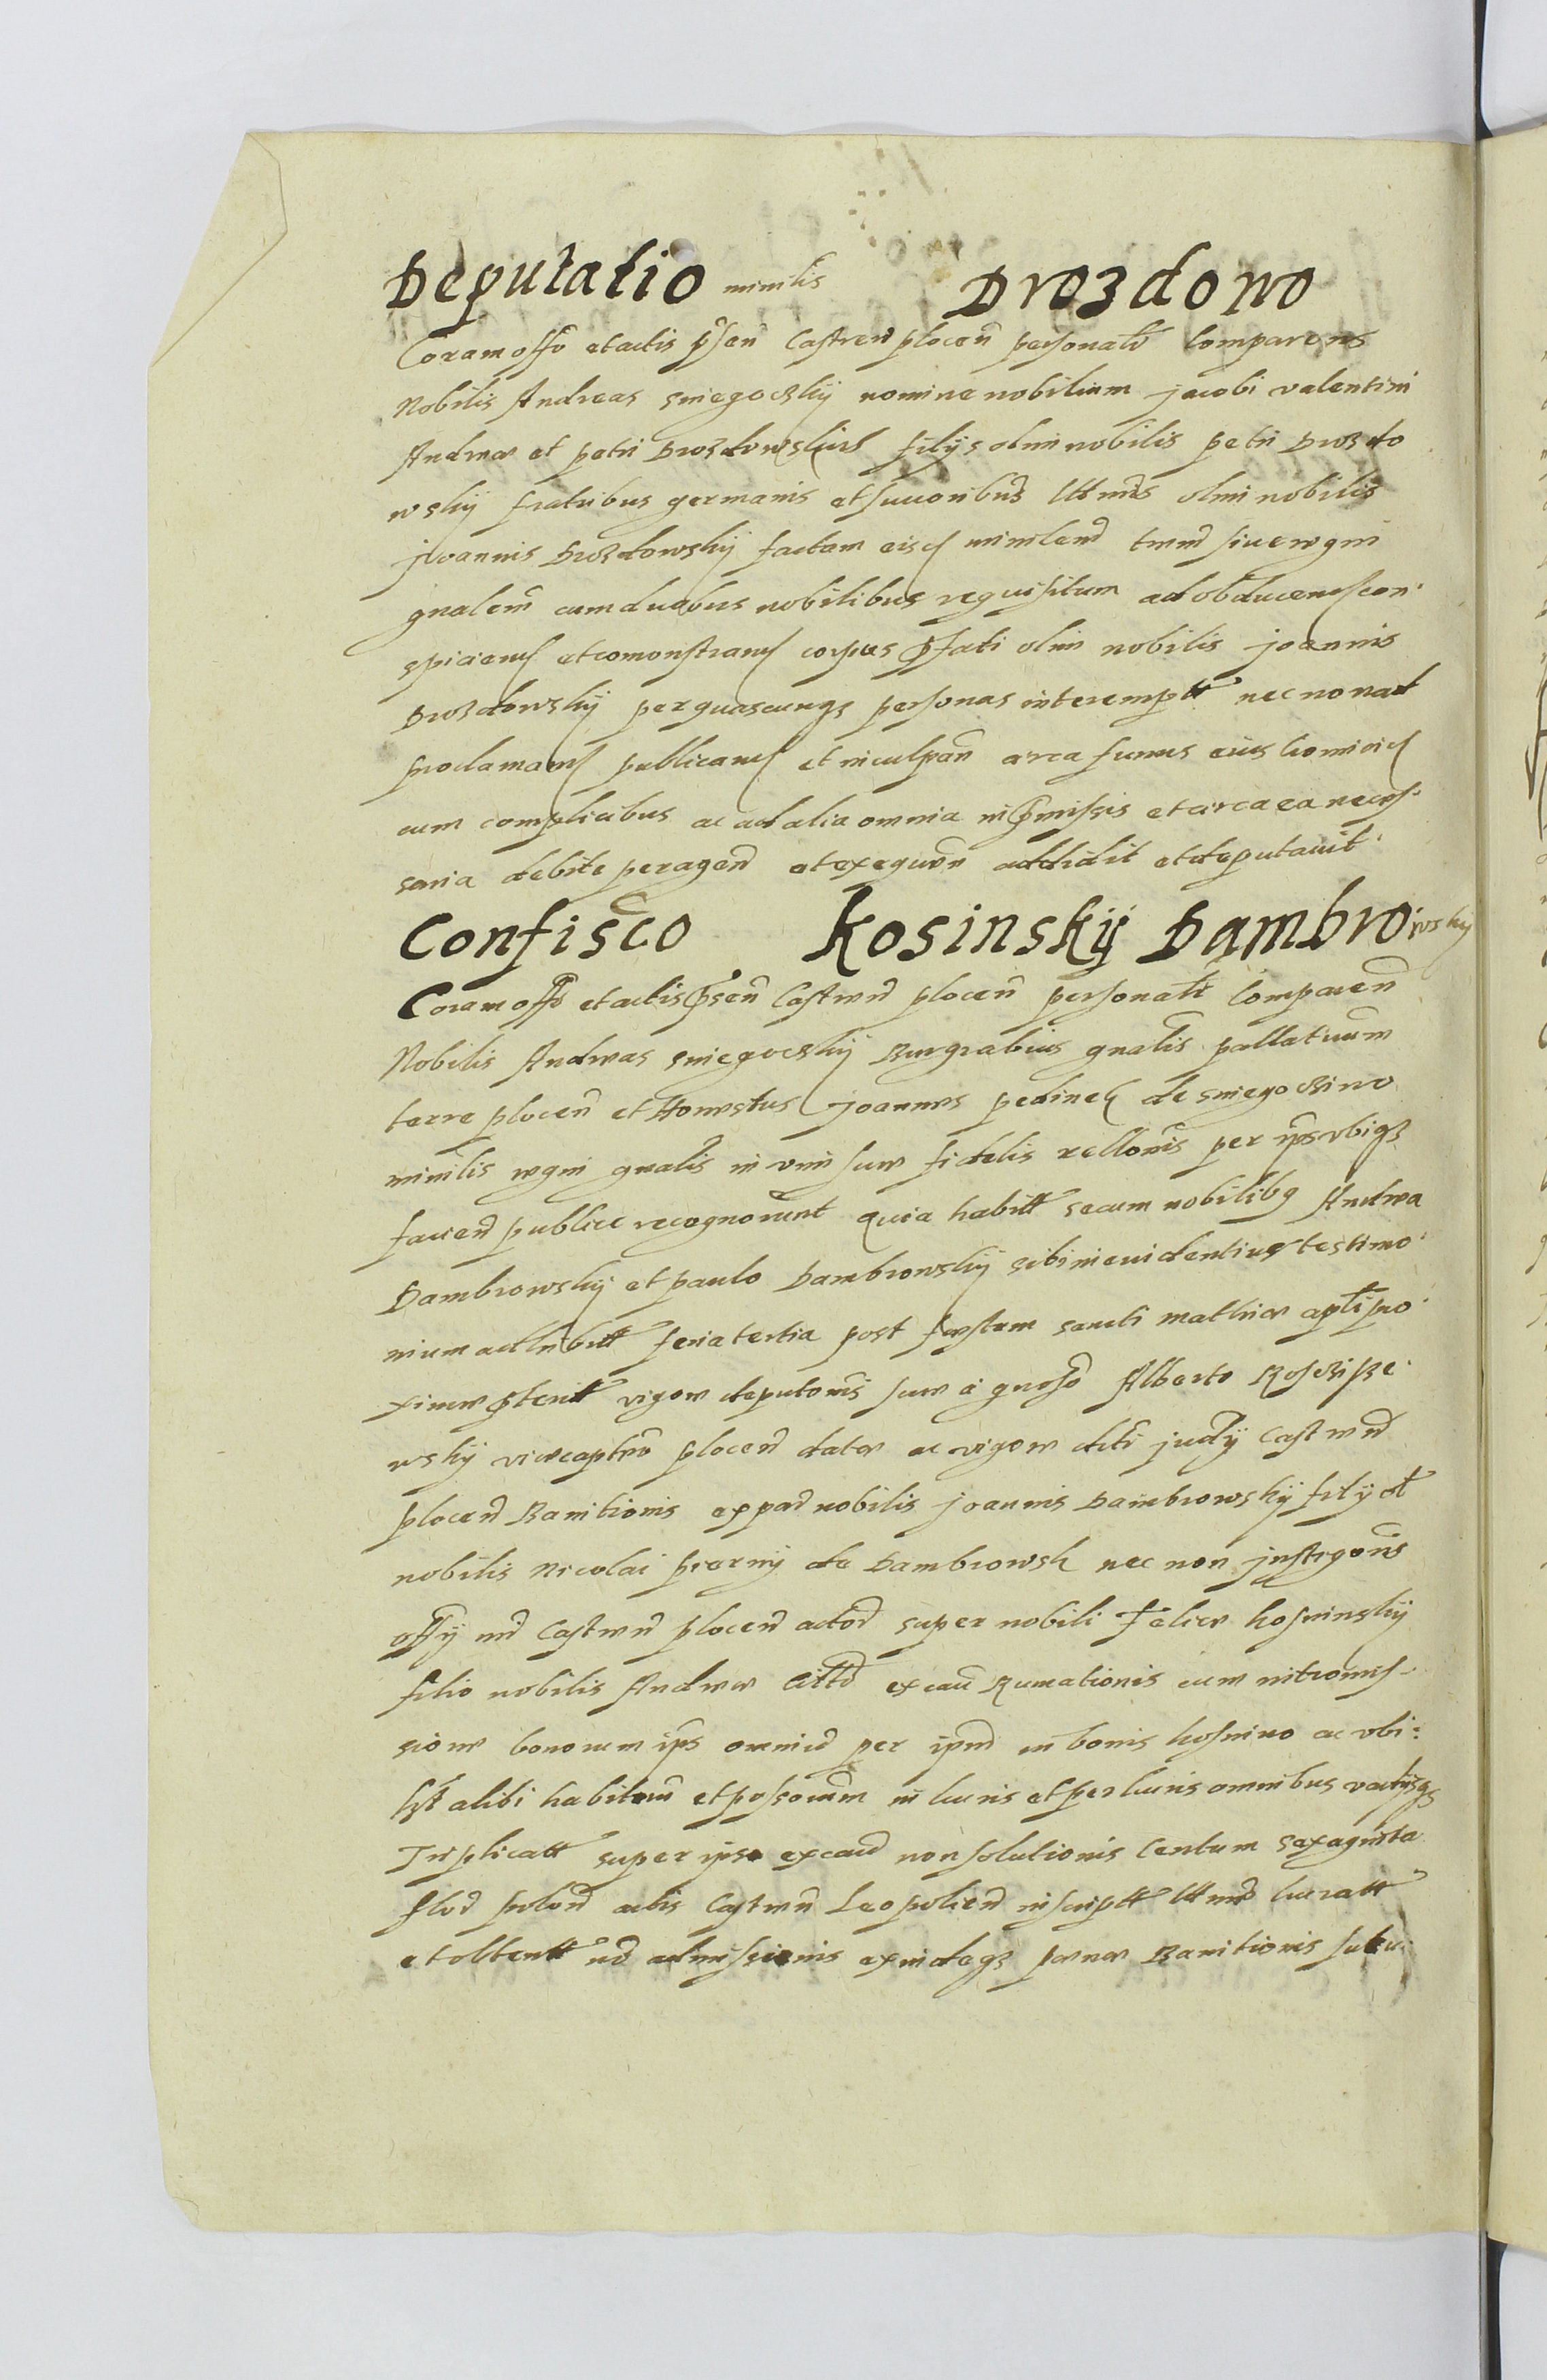 Deputatio minilis Drozdowo
Coram offo et actis psen Castren plocen personalr Comparens
Nobilis Andreas sniegoczky nomine nobilium jacobi valentini
Andreae et petri Drozdowskich filijs olim nobilis petri Drozdo
wskij fratribus germanis et successoribus lttmis olim nobilis
joannis Drozdowskij factam eisd minilem tnnd siue regni
gnalem cum duobus nobilibus requisitum ad obducend con-
spiciend et comonstrand corpus pfati olim nobilis joannis
Drozdowskij per quascunqz personas interempti nec non ad
proclamand publicand et inculpan circa funus eius homicid
cum complicibus ac ad alia omnia in pmissis et circa ea neces-
saria debite peragend et exequen addidit et deputauit.
Confisco Kosinskij Dambrowskij
Coram offo et actis psen Castren plocen personalr Comparen
Nobilis Andreas sniegoczkij Burgrabius gnalis pallatinum
terre plocen et Honestus joannes pedinek de sniegoczino
minilis regni gnalis in vim sue fidelis rellonis per ipsos vbiqz
facien publice recognorunt Quia habitt secum nobilibq Andrea
Dambrowskij et paulo Dambrowskij sibi in euidentius testimo-
nium adhibitt feria tertia post festum sancti mathiae apli pro-
xime pterit vigore deputonis sue a gnoso Alberto Roscisze-
wskij vicecaptno plocen datae ac vigore dcti judij Castren
plocen Banitionis ex pad nobilis joannis Dambrowskij filij ol
nobilis Nicolai piernij de Dambrowsk nec non jnstigonis
offij nri Castren plocen actor super nobili Felice kosninskij
filio nobilis Andreae Citto ex cau Rumationis cum intromis-
sione bonorum ips omniu per ipm in bonis kosnino ac vbi-
lbt alibi habitorum et possorum in lucris et perlucris omnibus vadijsqz
Triplicatt super ipso ex cau non solutionis Centum sexaginta
flor polon actis Castren Leopolien inscriptt lttme lucratt
et obtentt nd admissionis exindeqz penae Banitionis subcu